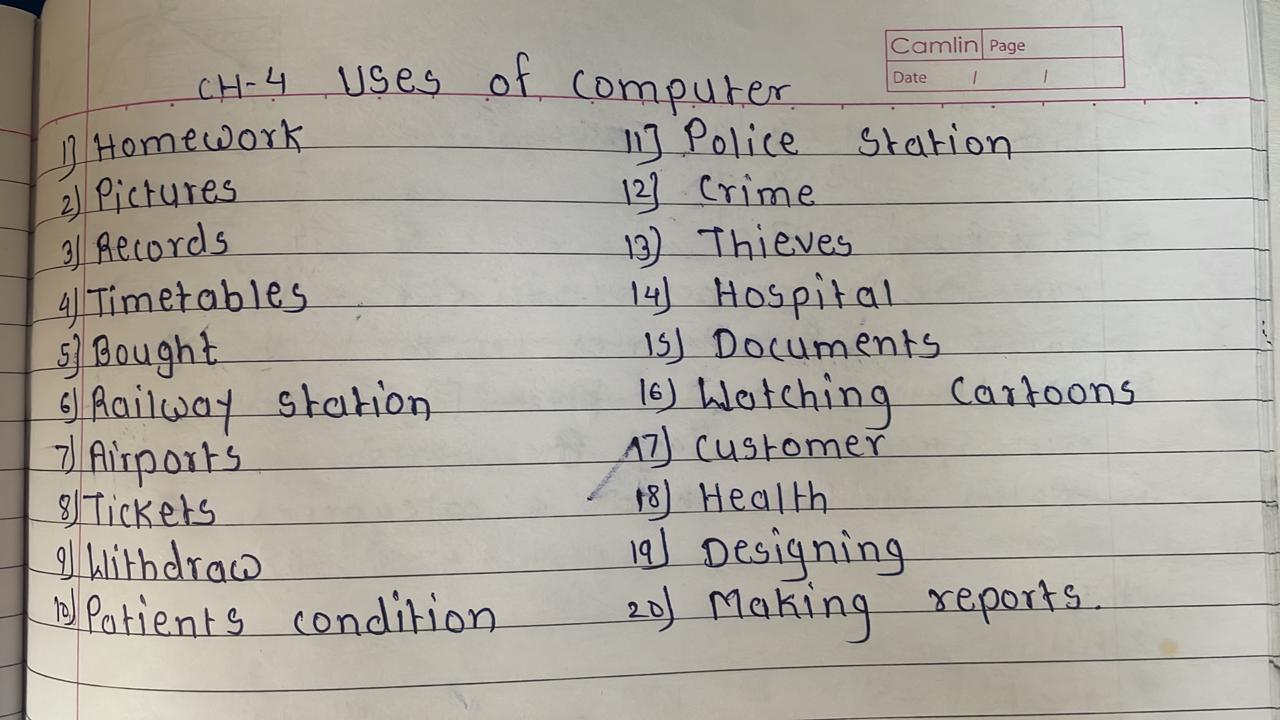 Camlin Page
Date / /
CH-4 Uses of computer
1) Homework
2) Pictures
3) Records
4) Timetables
5) Bought
6) Railway station
7) Airports
8) Tickets
9) Withdraw
10) Patients condition
11) Police station
12) Crime
13) Thieves
14) Hospital
15) Documents
16) Watching Cartoons
17) Customer
18) Health
19) Designing
20) Making reports.